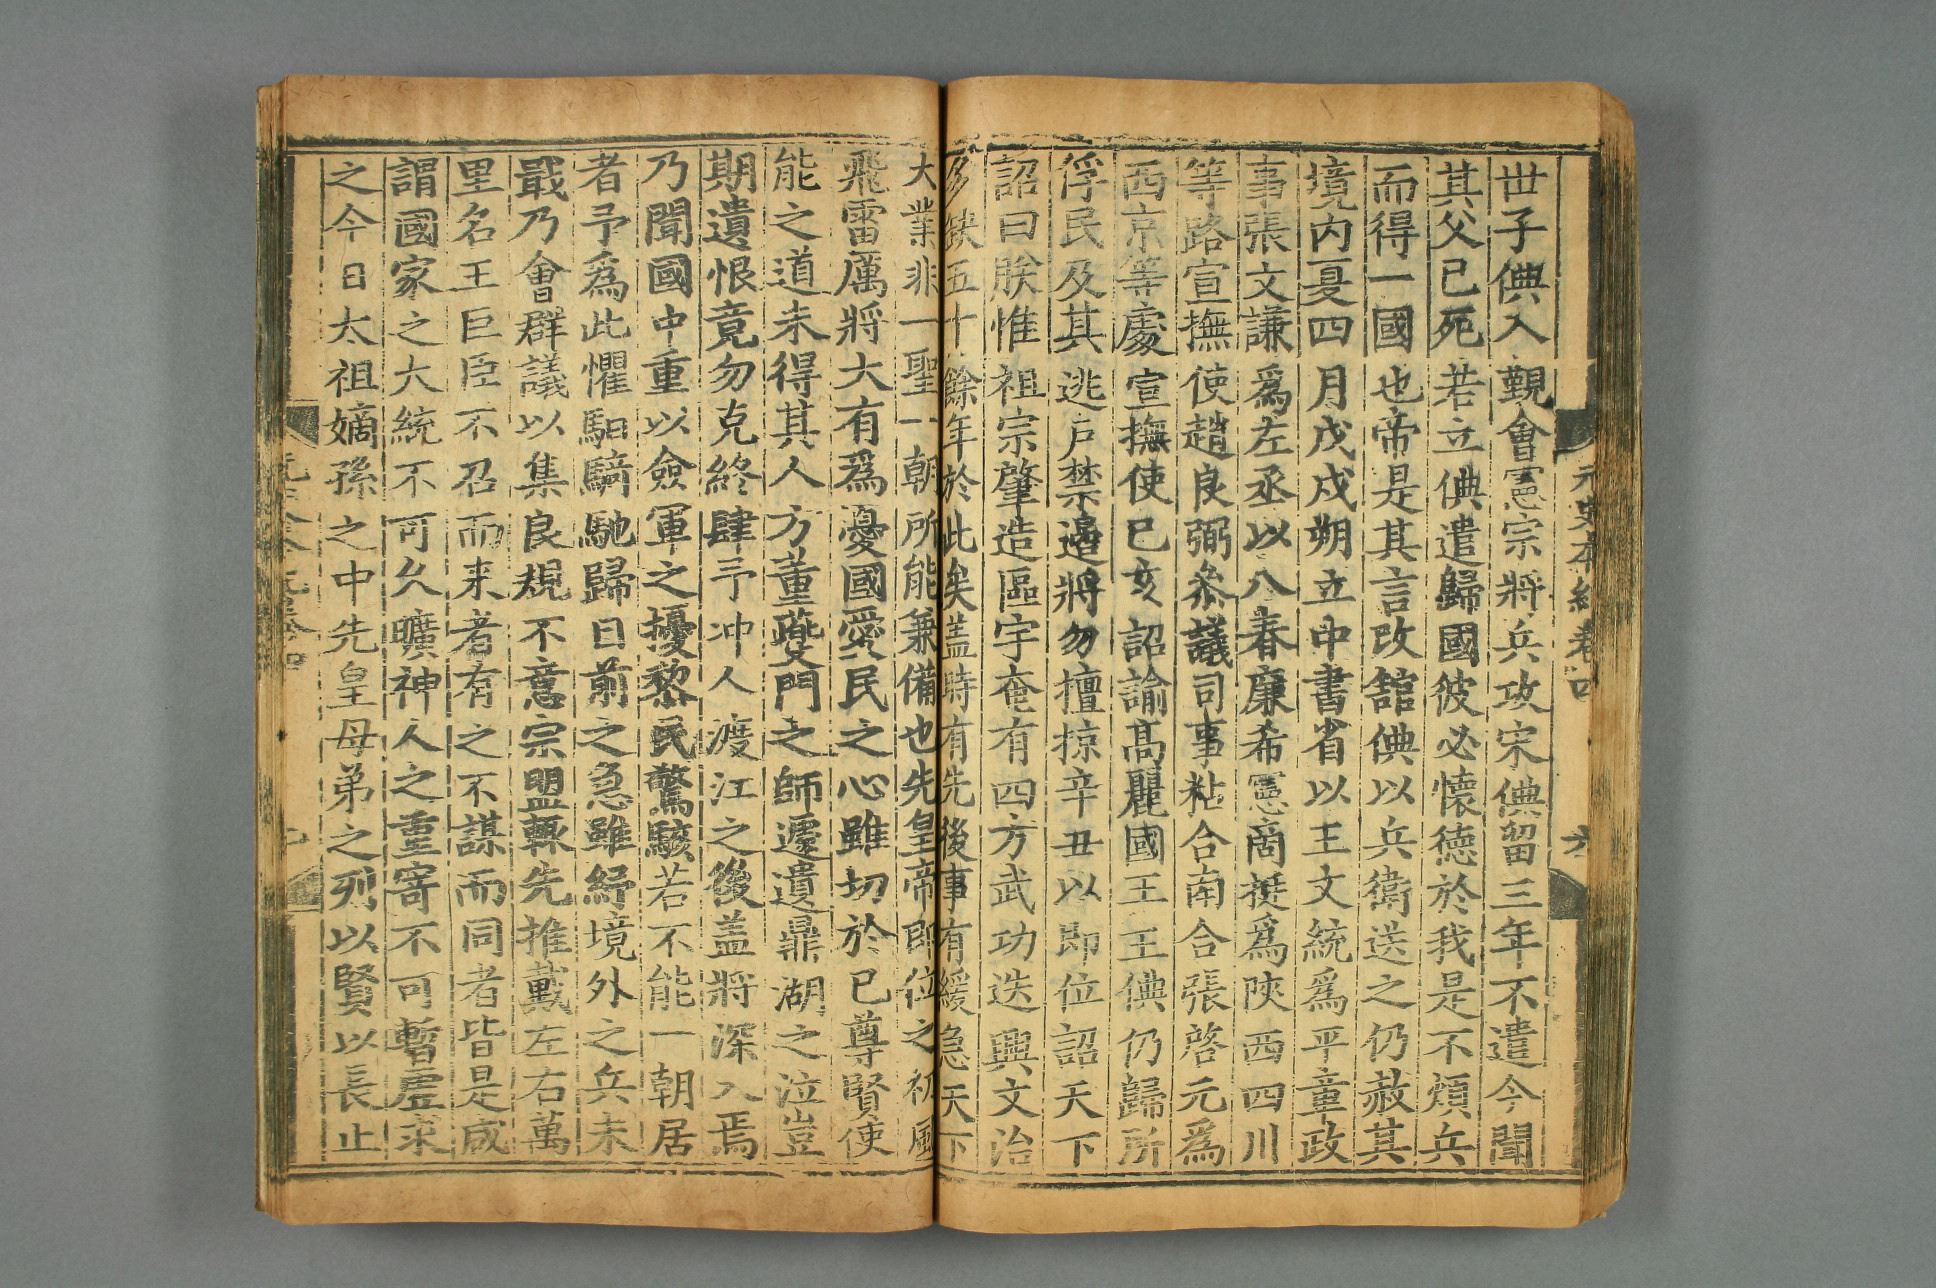 元史本紀卷四
六
世子倎入覲會憲宗將兵攻宋倎留三年不遣今聞
其父已死若立倎遣歸國彼必懷德於我是不煩兵
而得一國也帝是其言改舘倎以兵衛送之仍赦其
境內夏四月戊戌朔立中書省以王文統爲平章政
事張文謙爲左丞以八春廉希憲商挺爲陝西四川
等路宣撫使趙良弼叅議司事粘合南合張啓元爲
西京等處宣撫使己亥詔諭高麗國王王倎仍歸所
俘民及其逃戶禁邉將勿擅掠辛丑以即位詔天下
詔曰朕惟祖宗肇造區宇奄有四方武功迭興文治
多缺五十餘年於此矣盖時有先後事有緩急天下
大業非一聖一朝所能兼備也先皇帝即位之初風
飛雷厲將大有爲憂國愛民之心雖切於己尊賢使
能之道未得其人方董夔門之師遽遺鼎湖之泣豈
期遺恨竟勿克終肆予冲人渡江之後盖將深入焉
乃聞國中重以僉軍之擾黎民驚駭若不能一朝居
者予爲此懼馹騎馳歸目前之急雖紓境外之兵未
戢乃會群議以集良規不意宗盟輙先推戴左右萬
里名王巨臣不召而来者有之不謀而同者皆是咸
謂國家之大統不可久曠神人之重寄不可暫虛求
之今日太祖嫡孫之中先皇母弟之列以賢以長止